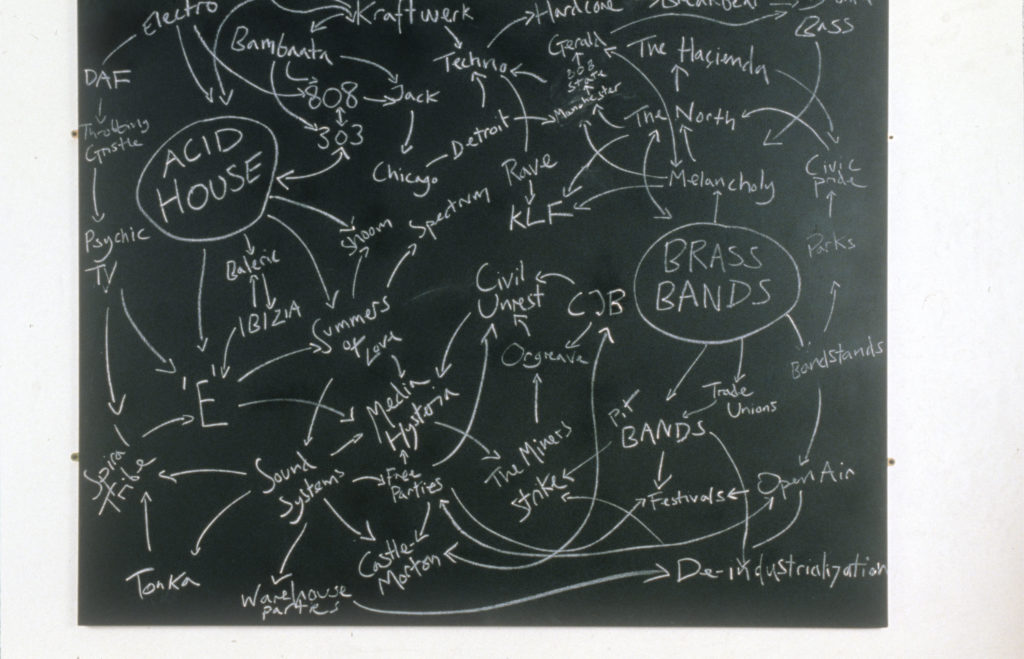 Electro
Kraftwerk
Hardcore
Breakbeat
Bass
Bambaata
Techno
Gerald
The Haçienda
DAF
808
Jack
808
State
Manchester
The North
Throbbing
Gristle
303
Detroit
ACID
HOUSE
Chicago
Rave
Melancholy
Civic
pride
KLF
Shoom
Spectrum
Psychic
TV
Baleric
BRASS
BANDS
Parks
Civil
Unrest
CJB
IBIZIA
Summers
of Love
Orgreave
Bandstands
'E'
Media
Hysteria
Trade
Unions
Pit
BANDS
Spira
Tribe
Sound
Systems
Free
Parties
The Miners
Strike
Festivals
Open Air
Castle-
Morton
De-industrialization
Tonka
Warehouse
parties